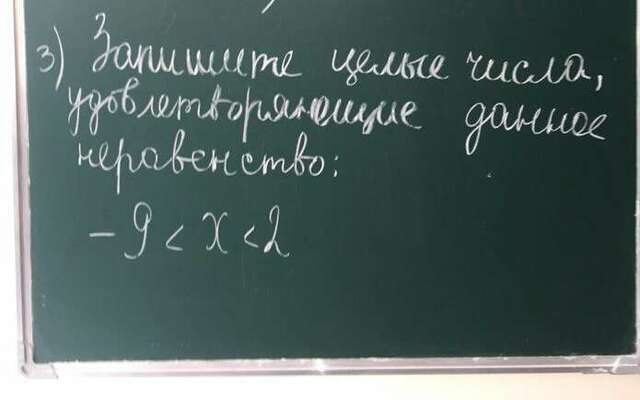 3) Запишите целые числа,
удовлетворяющие данное
неравенство:
- 9 < x < 2